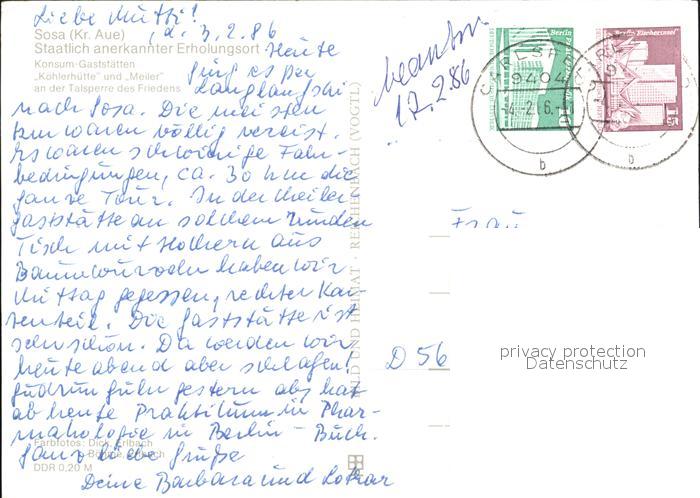 Liebe Mutti!
Sosa (Kr. Aue) , d. 3.2.86
Staatlich anerkannter Erholungsort Heute
Konsum-Gaststätten
„Köhlerhütte" und „Meiler"
an der Talsperre des Friedens
ging es per
Langlaufski
nach Sosa. Die meisten
km waren völlig vereist.
Es waren schwierige Fahr-
bedingungen, ca. 30 km die
ganze Tour. In der Meiler-
gaststätte an solchem runden
Tisch mit Hockern aus
Baumwurzeln haben wir
Mittag gegessen, rechter Kar-
tenteil. Die Gaststätte ist
sehr schön. Da werden wir
heute abend aber schlafen!
Gudrun fuhr gestern ab, hat
ab heute Praktikum in Phar-
makologie in Berlin - Buch.
Farbfotos: Dick, Erlbach
Ganz liebe Grüße
DDR 0,20 M
Deine Barbara und Lothar
BILD UND HEIMAT · REICHENBACH (VOGTL)
beantw.
17.2.86
Berlin
Berlin Fischerinsel
10
15
CARLSFELD
9404
-4.2.86.-
b
b
Frau
D 56
privacy protection
Datenschutz